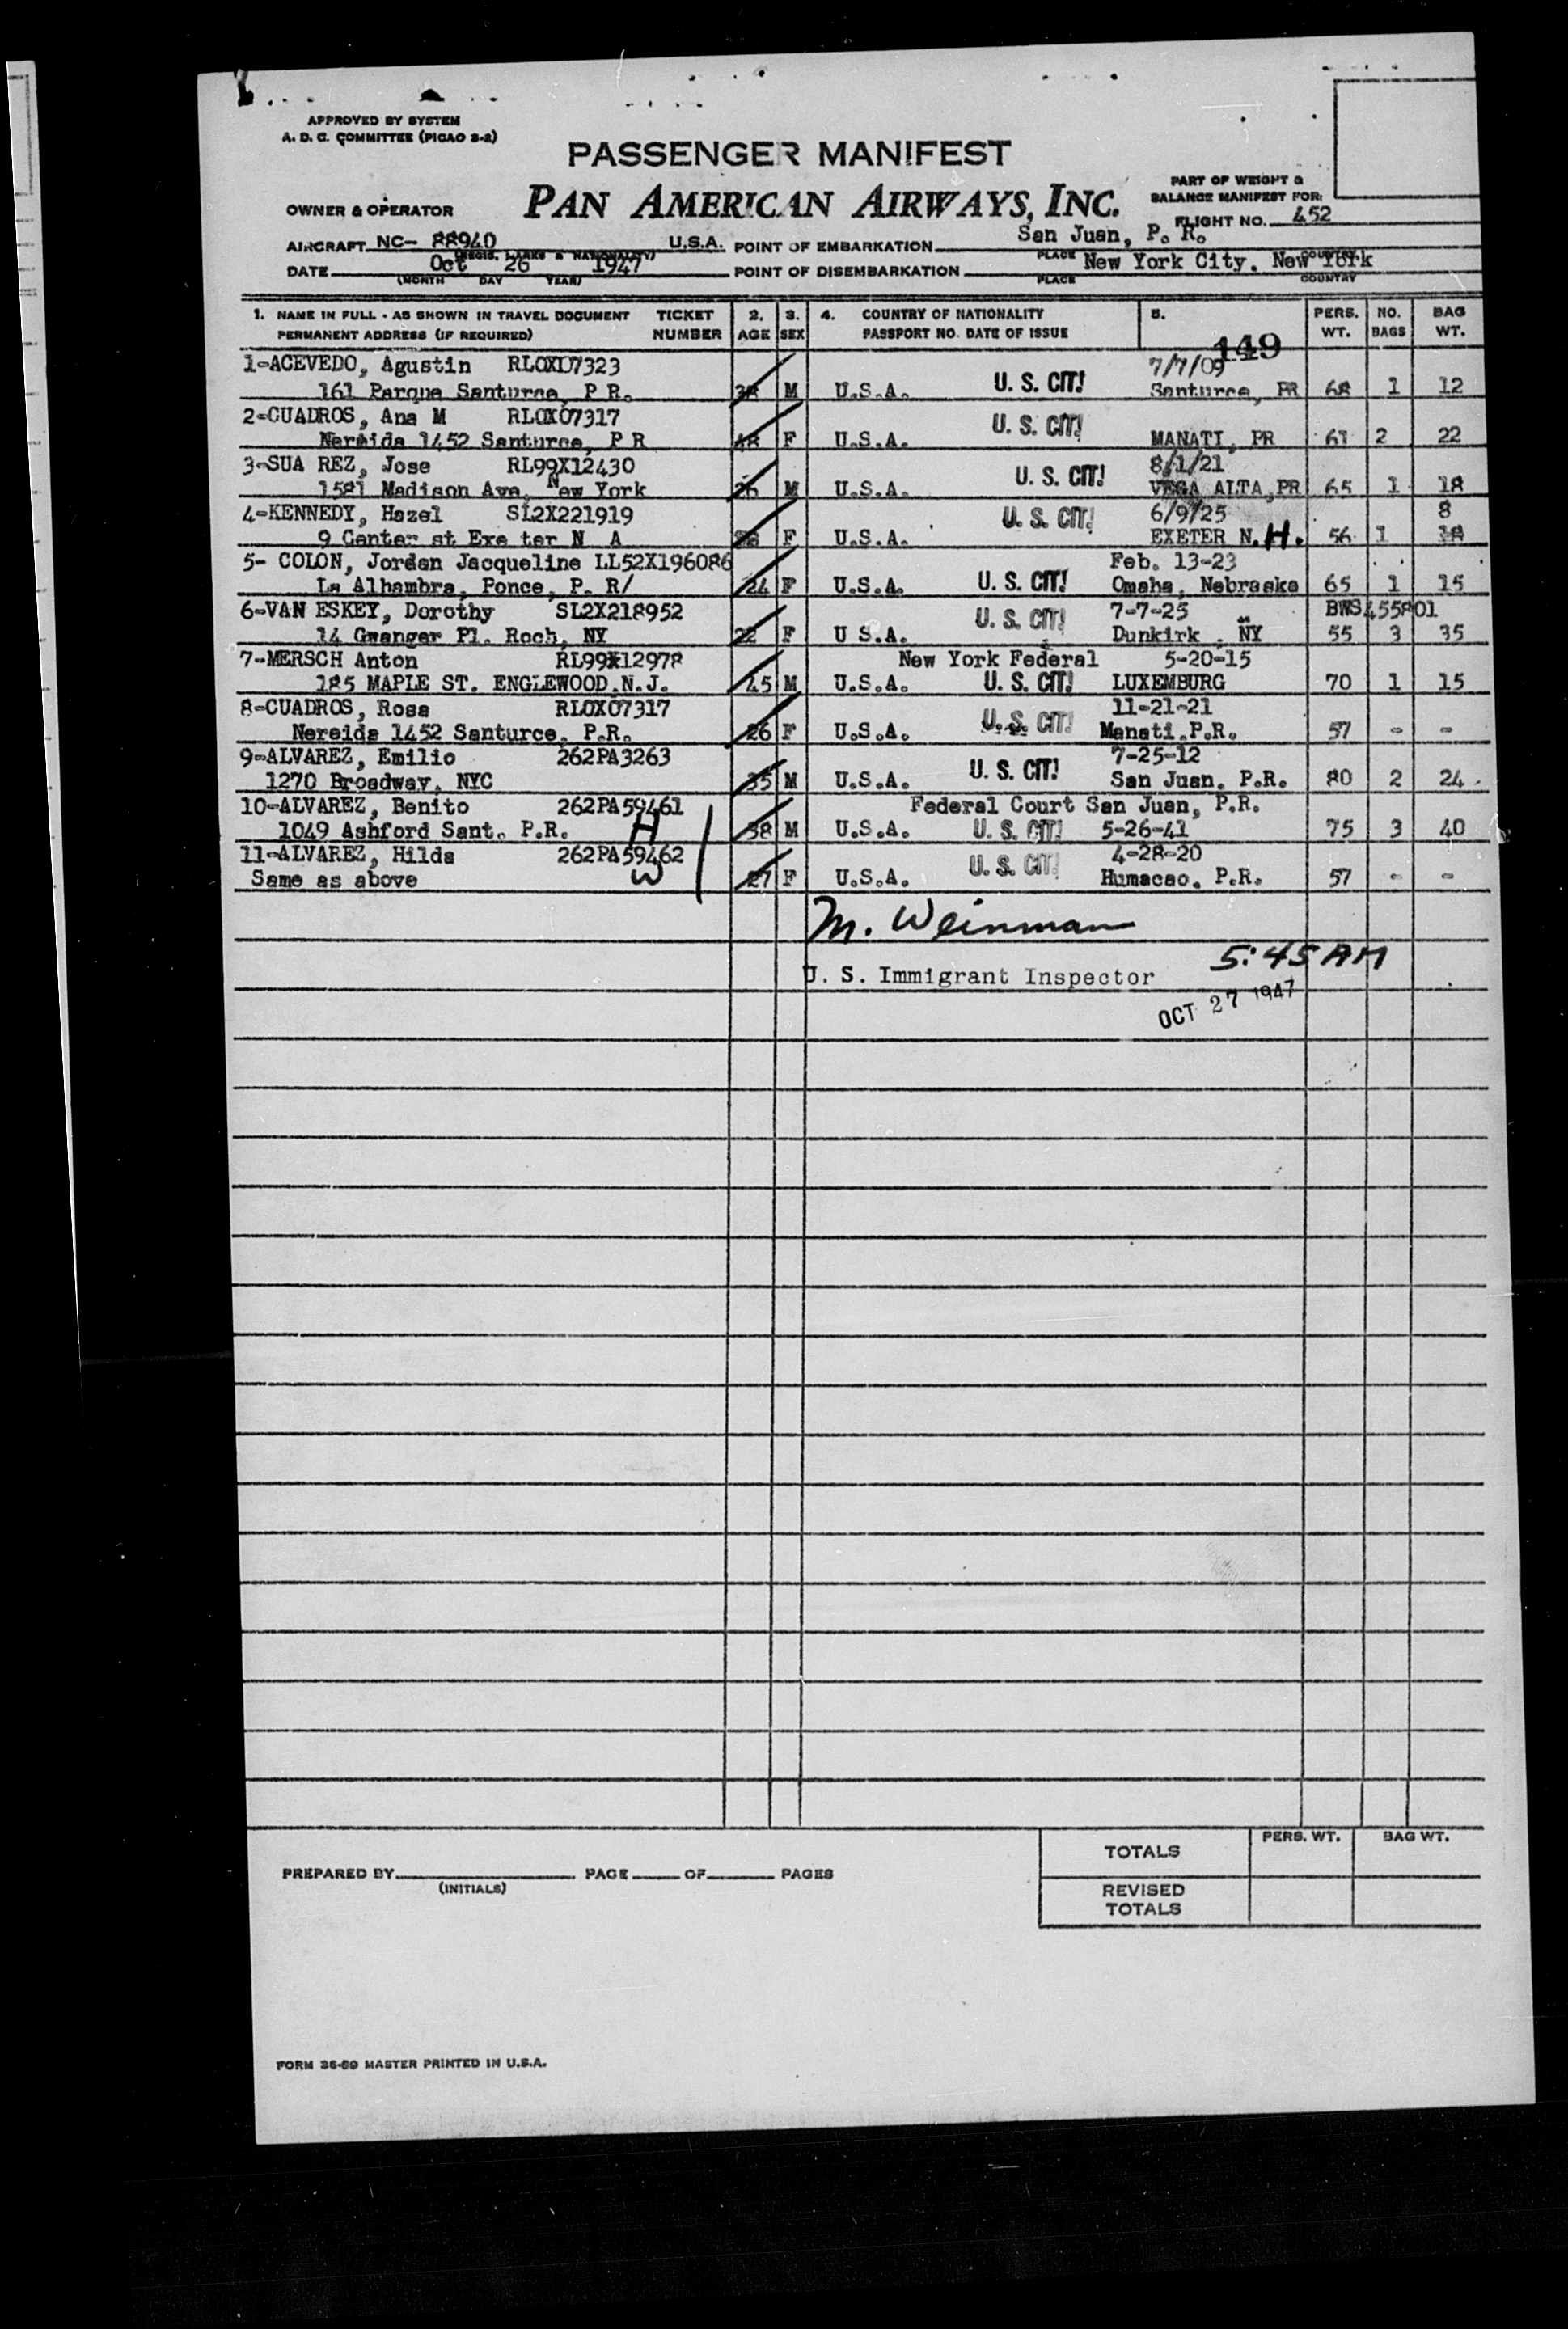 APPROVED BY SYSTEM
A. D. C. COMMITTEE (PICAO 2-2)
PASSENGER MANIFEST
OWNER & OPERATOR
PAN AMERICAN AIRWAYS, INC.
PART OF WEIGHT &
BALANCE MANIFEST FOR:
FLIGHT NO. 452
AIRCRAFT NC- 88940 U.S.A. POINT OF EMBARKATION San Juan, P. R.
(REGIS. MARKS & NATIONALITY) PLACE COUNTRY
DATE Oct 26 1947 POINT OF DISEMBARKATION New York City, New York
(MONTH DAY YEAR) PLACE COUNTRY
1. NAME IN FULL - AS SHOWN IN TRAVEL DOCUMENT TICKET 2. 3. 4. COUNTRY OF NATIONALITY 5. PERS. NO. BAG
PERMANENT ADDRESS (IF REQUIRED) NUMBER AGE SEX PASSPORT NO. DATE OF ISSUE WT. BAGS WT.
149
1-ACEVEDO, Agustin RLOXD7323 7/7/09
161 Parque Santurce, P R. 38 M U.S.A. U. S. CIT! Santurce, PR 68 1 12
2-CUADROS, Ana M RLOX07317 U. S. CIT!
Nereida 1452 Santurce, P R F U.S.A. MANATI, PR 61 2 22
3-SUA REZ, Jose RL99X12430 8/1/21
1581 Madison Ave, New York 26 M U.S.A. U. S. CIT! VEGA ALTA,PR 65 1 18
4-KENNEDY, Hazel SL2X221919 U. S. CIT! 6/9/25 8
9 Center st Exe ter N A F U.S.A. EXETER N.H. 56 1 18
5- COLON, Jordan Jacqueline LL52X196086 Feb. 13-23
La Alhambra, Ponce, P. R/ 24 F U.S.A. U. S. CIT! Omaha, Nebraska 65 1 15
6-VAN ESKEY, Dorothy SL2X218952 U. S. CIT! 7-7-25 BWS455801
14 Gwanger Pl. Roch, NY 22 F U S.A. Dunkirk , NY 55 3 35
7-MERSCH Anton RL99X12978 New York Federal 5-20-15
185 MAPLE ST. ENGLEWOOD,N.J. 45 M U.S.A. U. S. CIT! LUXEMBURG 70 1 15
8-CUADROS, Rosa RLOX07317 11-21-21
Nereida 1452 Santurce, P.R. 26 F U.S.A. U. S. CIT! Manati,P.R. 57 - -
9-ALVAREZ, Emilio 262PA3263 7-25-12
1270 Broadway, NYC 35 M U.S.A. U. S. CIT! San Juan, P.R. 80 2 24
10-ALVAREZ, Benito 262PA59461 Federal Court San Juan, P.R.
1049 Ashford Sant. P.R. H 38 M U.S.A. U. S. CIT! 5-26-41 75 3 40
11-ALVAREZ, Hilda 262PA59462 4-28-20
Same as above W 27 F U.S.A. U. S. CIT! Humacao, P.R. 57 - -
M. Weinman
5:45 AM
U. S. Immigrant Inspector
OCT 27 1947
PERS. WT. BAG WT.
TOTALS
PREPARED BY PAGE OF PAGES
(INITIALS)
REVISED
TOTALS
FORM 36-59 MASTER PRINTED IN U.S.A.